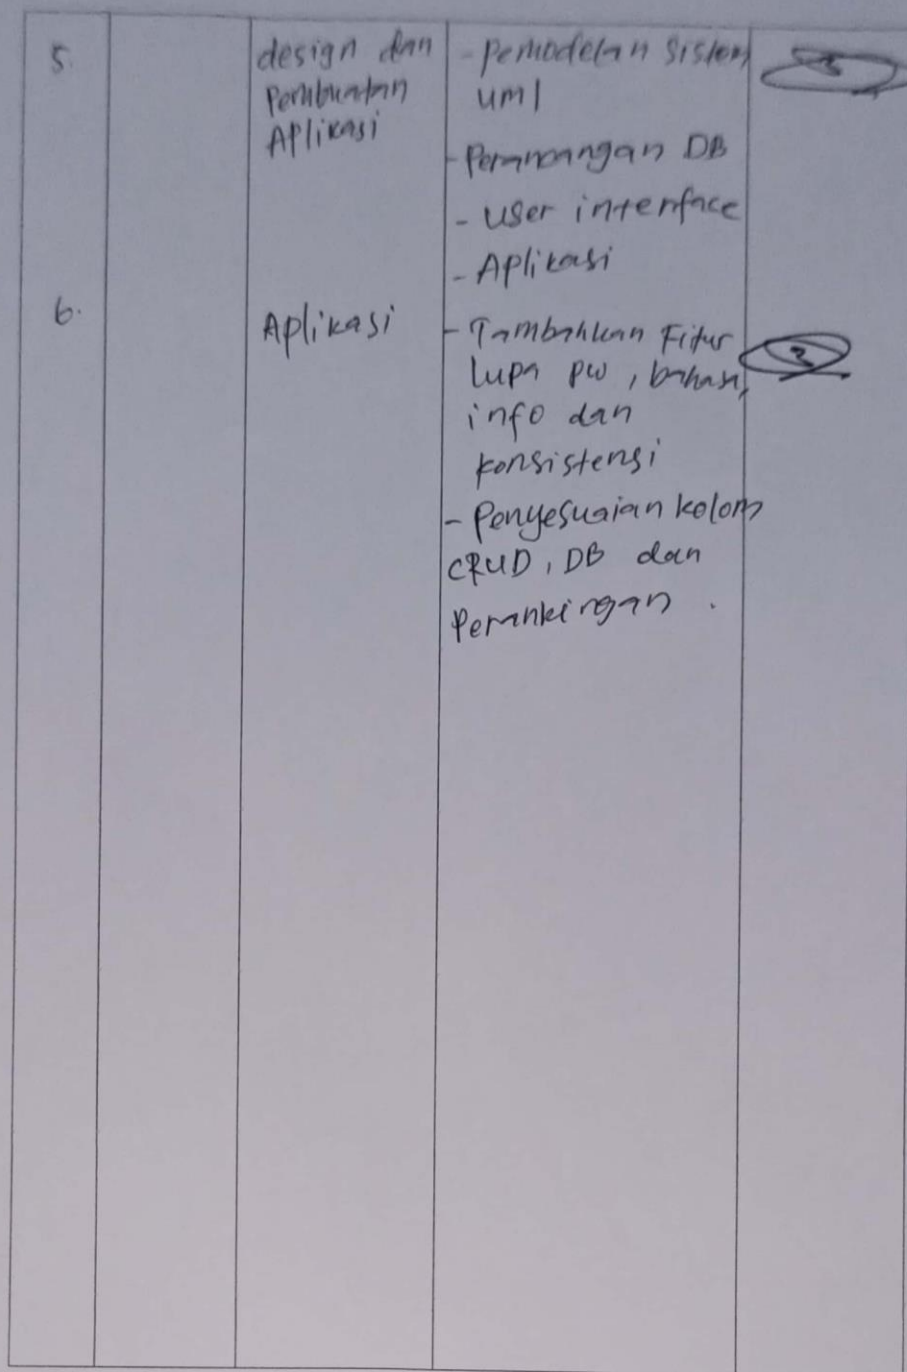 5.
design dan
Pembuatan
Aplikasi
- Pemodelan Sistem
uml
- Perancangan DB
- User interface
- Aplikasi
6.
Aplikasi
- Tambahkan Fitur
lupa pw, bahasa,
info dan
konsistensi
- Penyesuaian kolom
CRUD, DB dan
Perankingan.